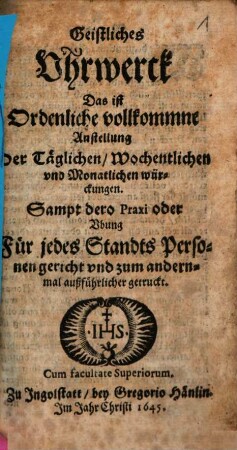 1
Geistliches
Vhrwerck
Das ist
Ordenliche vollkommne
Anstellung
Der Täglichen/Wochentlichen
vnd Monatlichen wür-
ckungen.
Sampt dero Praxi oder
Vbung
Für jedes Standts Perso-
nen gericht vnd zum andern-
mal außführlicher getruckt.
IHS
Cum facultate Superiorum.
Zu Ingolstatt/bey Gregorio Hänlin.
Im Jahr Christi 1645.